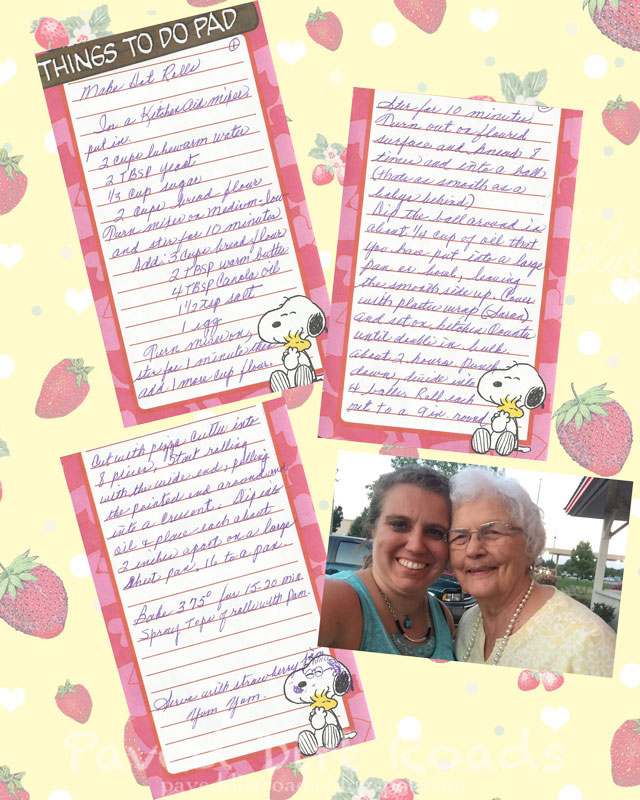 THINGS TO DO PAD
1
Make Hot Rolls
In a Kitchen Aid mixer,
put in:
2 cups lukewarm water
2 TBSP yeast
1/3 cup sugar
2 cups bread flour
Turn mixer on medium-low
and stir for 10 minutes
Add: 3 Cups bread flour
2 TBSP warm butter
4 TBSP Canola oil
1 1/2 tsp salt
1 egg
Turn mixer on,
stir for 1 minute then
add 1 more cup flour.
Stir for 10 minutes
Turn out on floured
surface and knead 8
times and into a ball
as smooth as a
babys behind)
the ball around in
about 1/4 cup of oil that
you have put into a large
pan or bowl, leaving
the smooth side up. Cover
with plastic wrap (Saran)
and set on kitchen Counter
until double in bulk,
about 2 hours. Punch
down divide into
balls. Roll each
out to a 9 in round
Cut with pizza Cutter into
8 pieces, Start rolling
with the wide end, pulling
the pointed end around
into a crescent. Dip in
oil & place each about
2 inches apart on a large
sheet pan, 16 to a pan.
Bake 375° for 15-20 min
Spray tops of rolls with Pam.
Serve with strawberry jam
Yum Yum.
Paved Dirt Roads